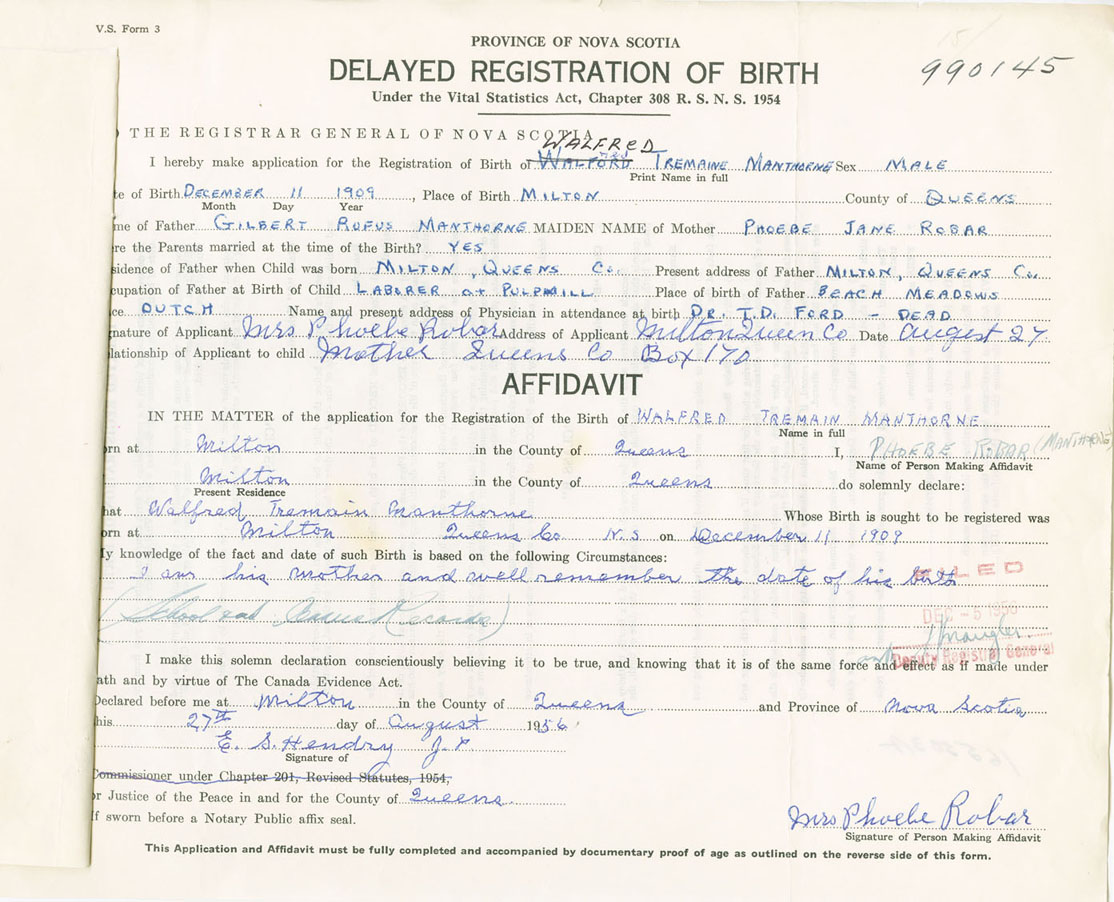 V.S. Form 3
PROVINCE OF NOVA SCOTIA
990145
DELAYED REGISTRATION OF BIRTH
Under the Vital Statistics Act, Chapter 308 R. S. N. S. 1954
THE REGISTRAR GENERAL OF NOVA SCOTIA
WALFRED
I hereby make application for the Registration of Birth of WALFORD TREMAINE MANTHORNE Sex MALE
Print Name in full
te of Birth DECEMBER 11 1909, Place of Birth MILTON County of QUEENS
Month Day Year
me of Father GILBERT RUFUS MANTHORNE MAIDEN NAME of Mother PHOEBE JANE ROBAR
re the Parents married at the time of the Birth? YES
sidence of Father when Child was born MILTON, QUEENS Co. Present address of Father MILTON, QUEENS Co.
cupation of Father at Birth of Child LABORER at PULPMILL Place of birth of Father BEACH MEADOWS
ce DUTCH Name and present address of Physician in attendance at birth DR. T.D. FORD - DEAD
nature of Applicant Mrs Phoebe Robar Address of Applicant Milton Queen Co Date August 27.
lationship of Applicant to child Mother Queens Co Box 170
AFFIDAVIT
IN THE MATTER of the application for the Registration of the Birth of WALFRED TREMAIN MANTHORNE
Name in full
rn at Milton in the County of Queens I, PHOEBE ROBAR (MANTHORNE)
Name of Person Making Affidavit
Milton in the County of Queens do solemnly declare:
Present Residence
hat Walfred Tremain Manthorne Whose Birth is sought to be registered was
orn at Milton Queens Co N.S on December 11 1909
y knowledge of the fact and date of such Birth is based on the following Circumstances:
I am his mother and well remember the date of his birth
FILED
(School and Records)
DEC -5 1956
Deputy Registrar General
I make this solemn declaration conscientiously believing it to be true, and knowing that it is of the same force and effect as if made under
ath and by virtue of The Canada Evidence Act.
Declared before me at Milton in the County of Queens and Province of Nova Scotia
his 27th day of August 1956
E. S. Hendry J.P
Signature of
Commissioner under Chapter 201, Revised Statutes, 1954,
or Justice of the Peace in and for the County of Queens.
If sworn before a Notary Public affix seal.
Mrs Phoebe Robar
Signature of Person Making Affidavit
This Application and Affidavit must be fully completed and accompanied by documentary proof of age as outlined on the reverse side of this form.